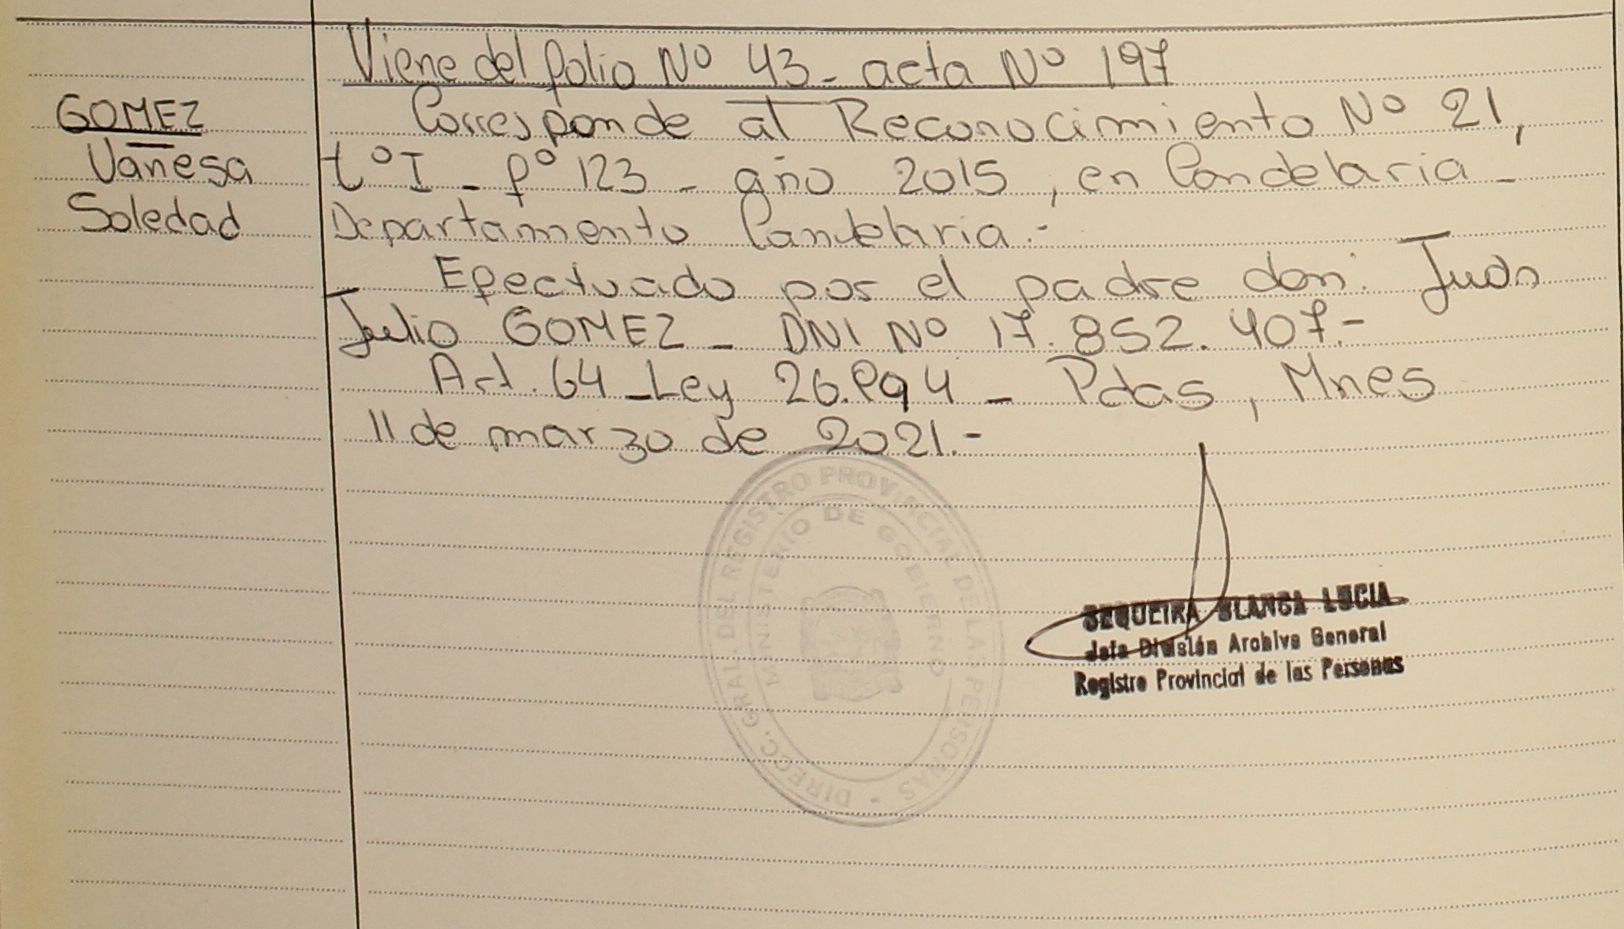 Viene del folio Nº 43 - acta Nº 197
GOMEZ
Vanesa
Soledad
Corresponde al Reconocimiento Nº 21,
tº I - fº 123 - año 2015, en Candelaria -
Departamento Candelaria.-
Efectuado por el padre don: Juan
Julio GOMEZ - DNI Nº 17.852.407.-
Art. 64 - Ley 26.994 - Pdas, Mnes
11 de marzo de 2021.-
DIRECC. GRAL. DEL REGISTRO PROVINCIAL DE LAS PERSONAS -
MINISTERIO DE GOBIERNO
SEQUEIRA BLANCA LUCIA
Jefa División Archivo General
Registro Provincial de las Personas